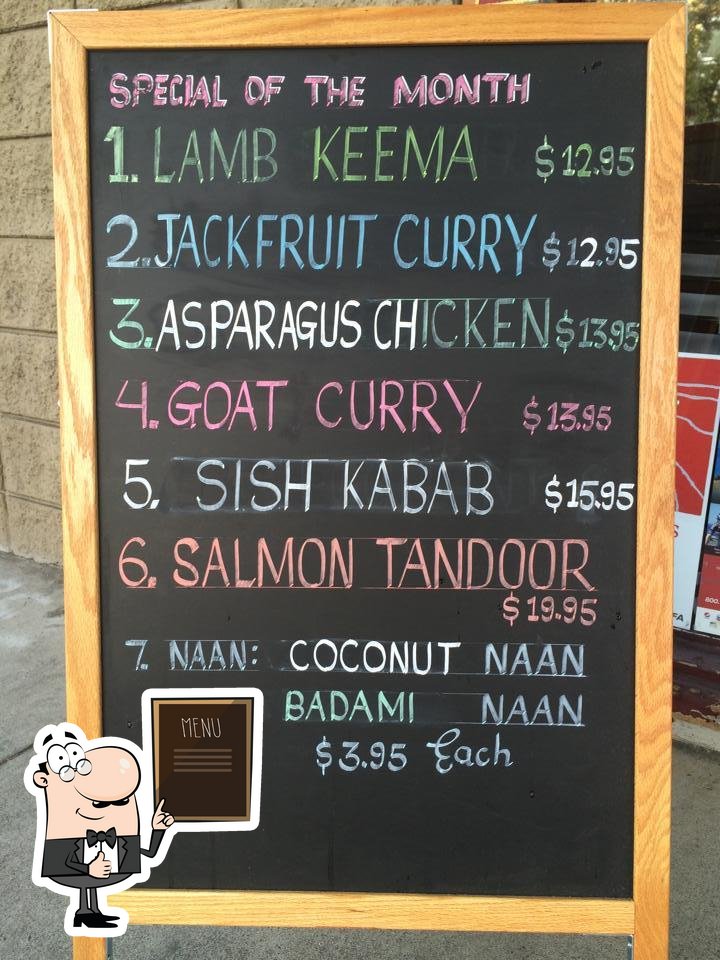 SPECIAL OF THE MONTH
1. LAMB KEEMA $12.95
2. JACKFRUIT CURRY $12.95
3. ASPARAGUS CHICKEN $13.95
4. GOAT CURRY $13.95
5. SISH KABAB $15.95
6. SALMON TANDOOR
$19.95
7. NAAN: COCONUT NAAN
BADAMI NAAN
$3.95 Each
MENU